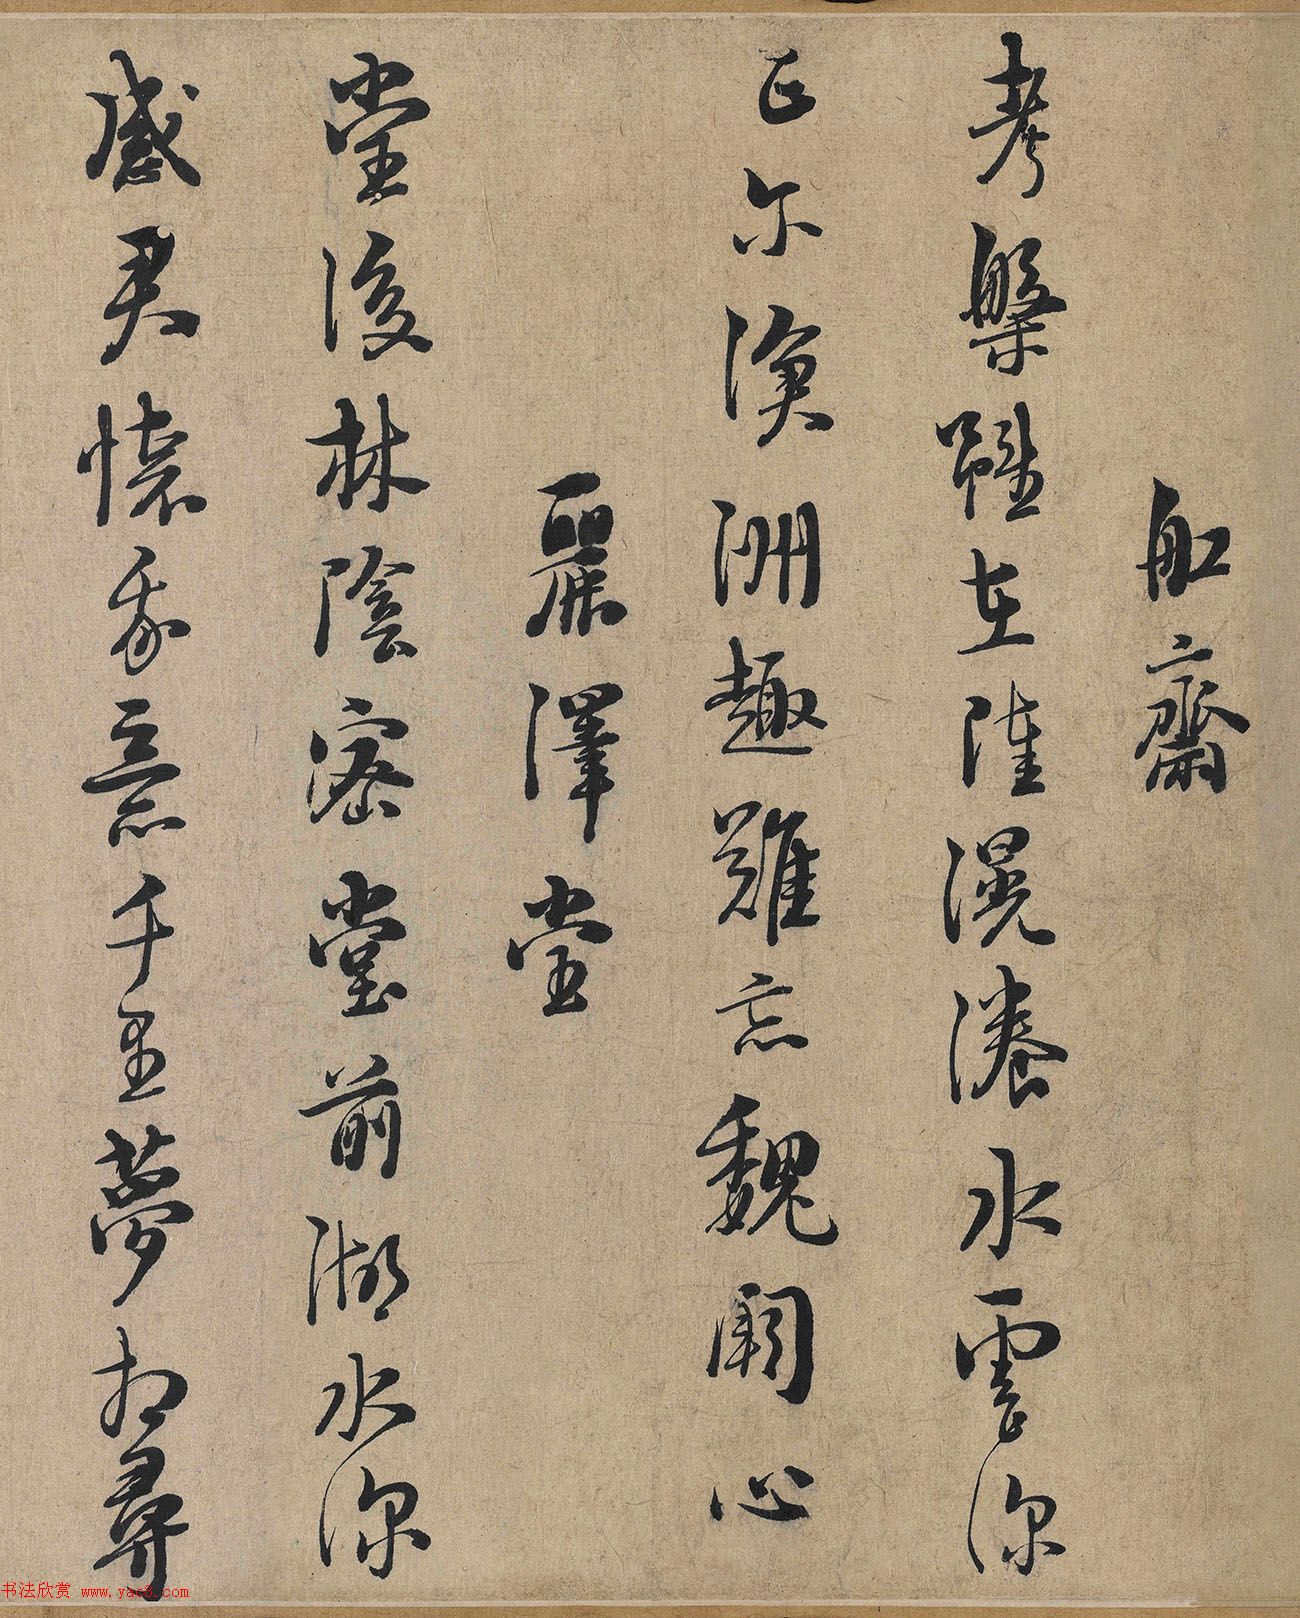 船齋
考槃雖在陸滉瀁水雲深
正尔滄洲趣難忘魏闕心
麗澤堂
堂後林陰密堂前湖水深
感君懷我意千里夢相尋
书法欣赏 www.yac8.com